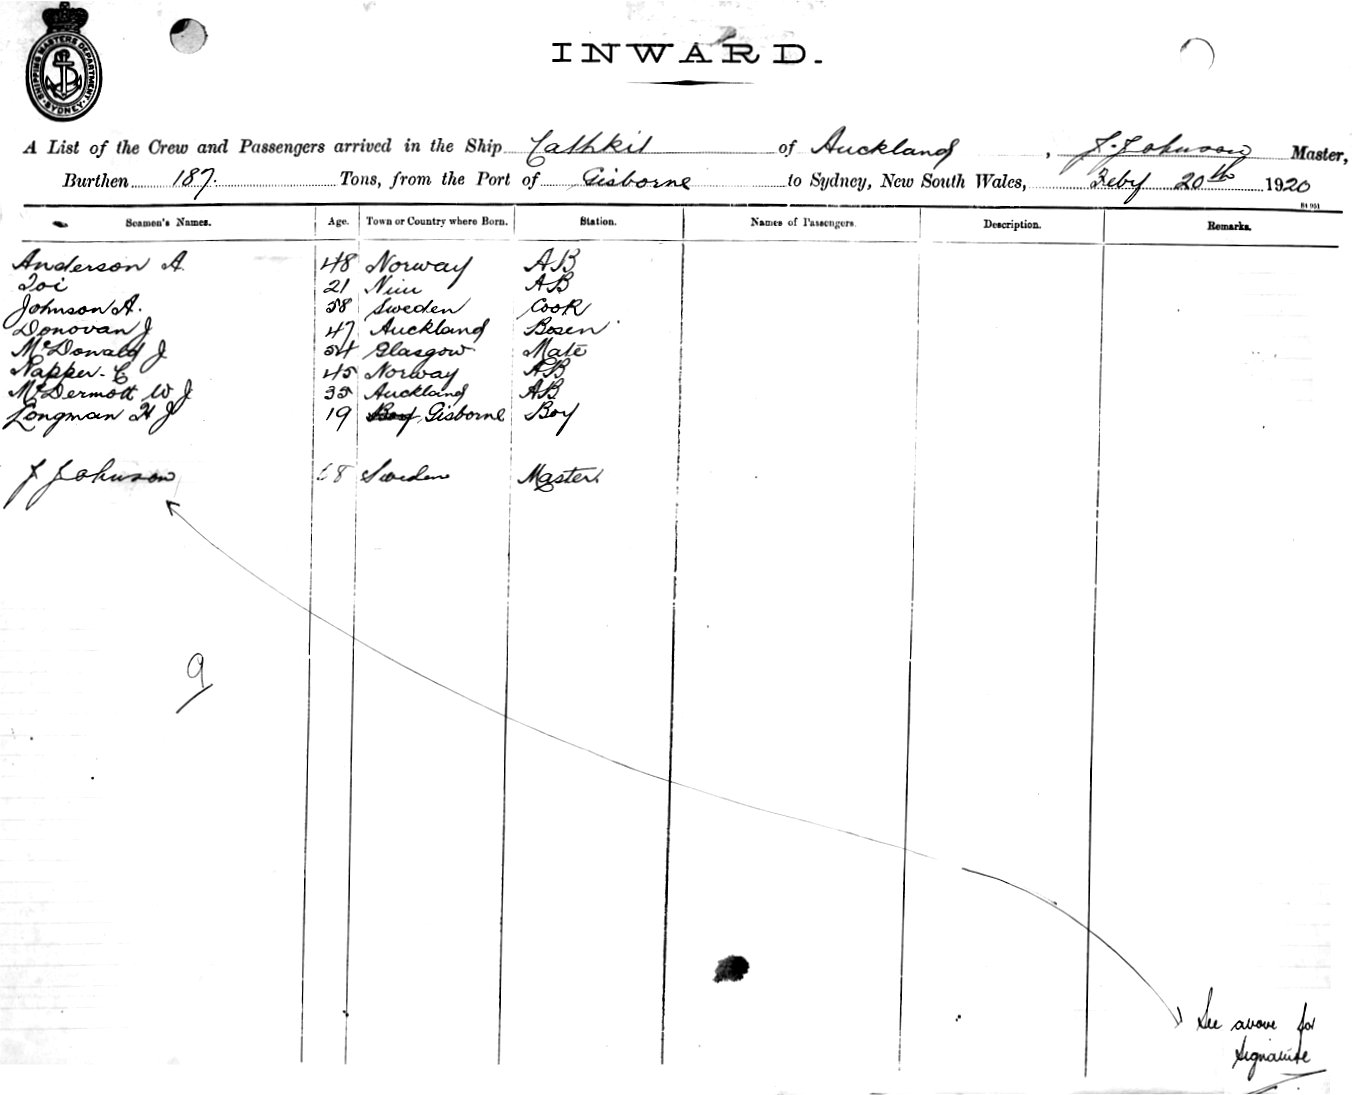 SHIPPING MASTERS DEPARTMENT SYDNEY
INWARD.
A List of the Crew and Passengers arrived in the Ship Cathkit of Auckland, J. Johnson Master,
Burthen 187. Tons, from the Port of Gisborne to Sydney, New South Wales, Feby 20th 1920
Seamen's Names. Age. Town or Country where Born. Station. Names of Passengers. Description. Remarks.
Anderson A. 48 Norway AB
Toi 21 Niu AB
Johnson A. 58 Sweden Cook
Donovan J 47 Auckland Bosen
McDonald J 54 Glasgow Mate
Napper. C 45 Norway AB
McDermott W J 35 Auckland AB
Longman H J 19 Boy Gisborne Boy
J Johnson 8 Sweden Master
9
See above for
Signature